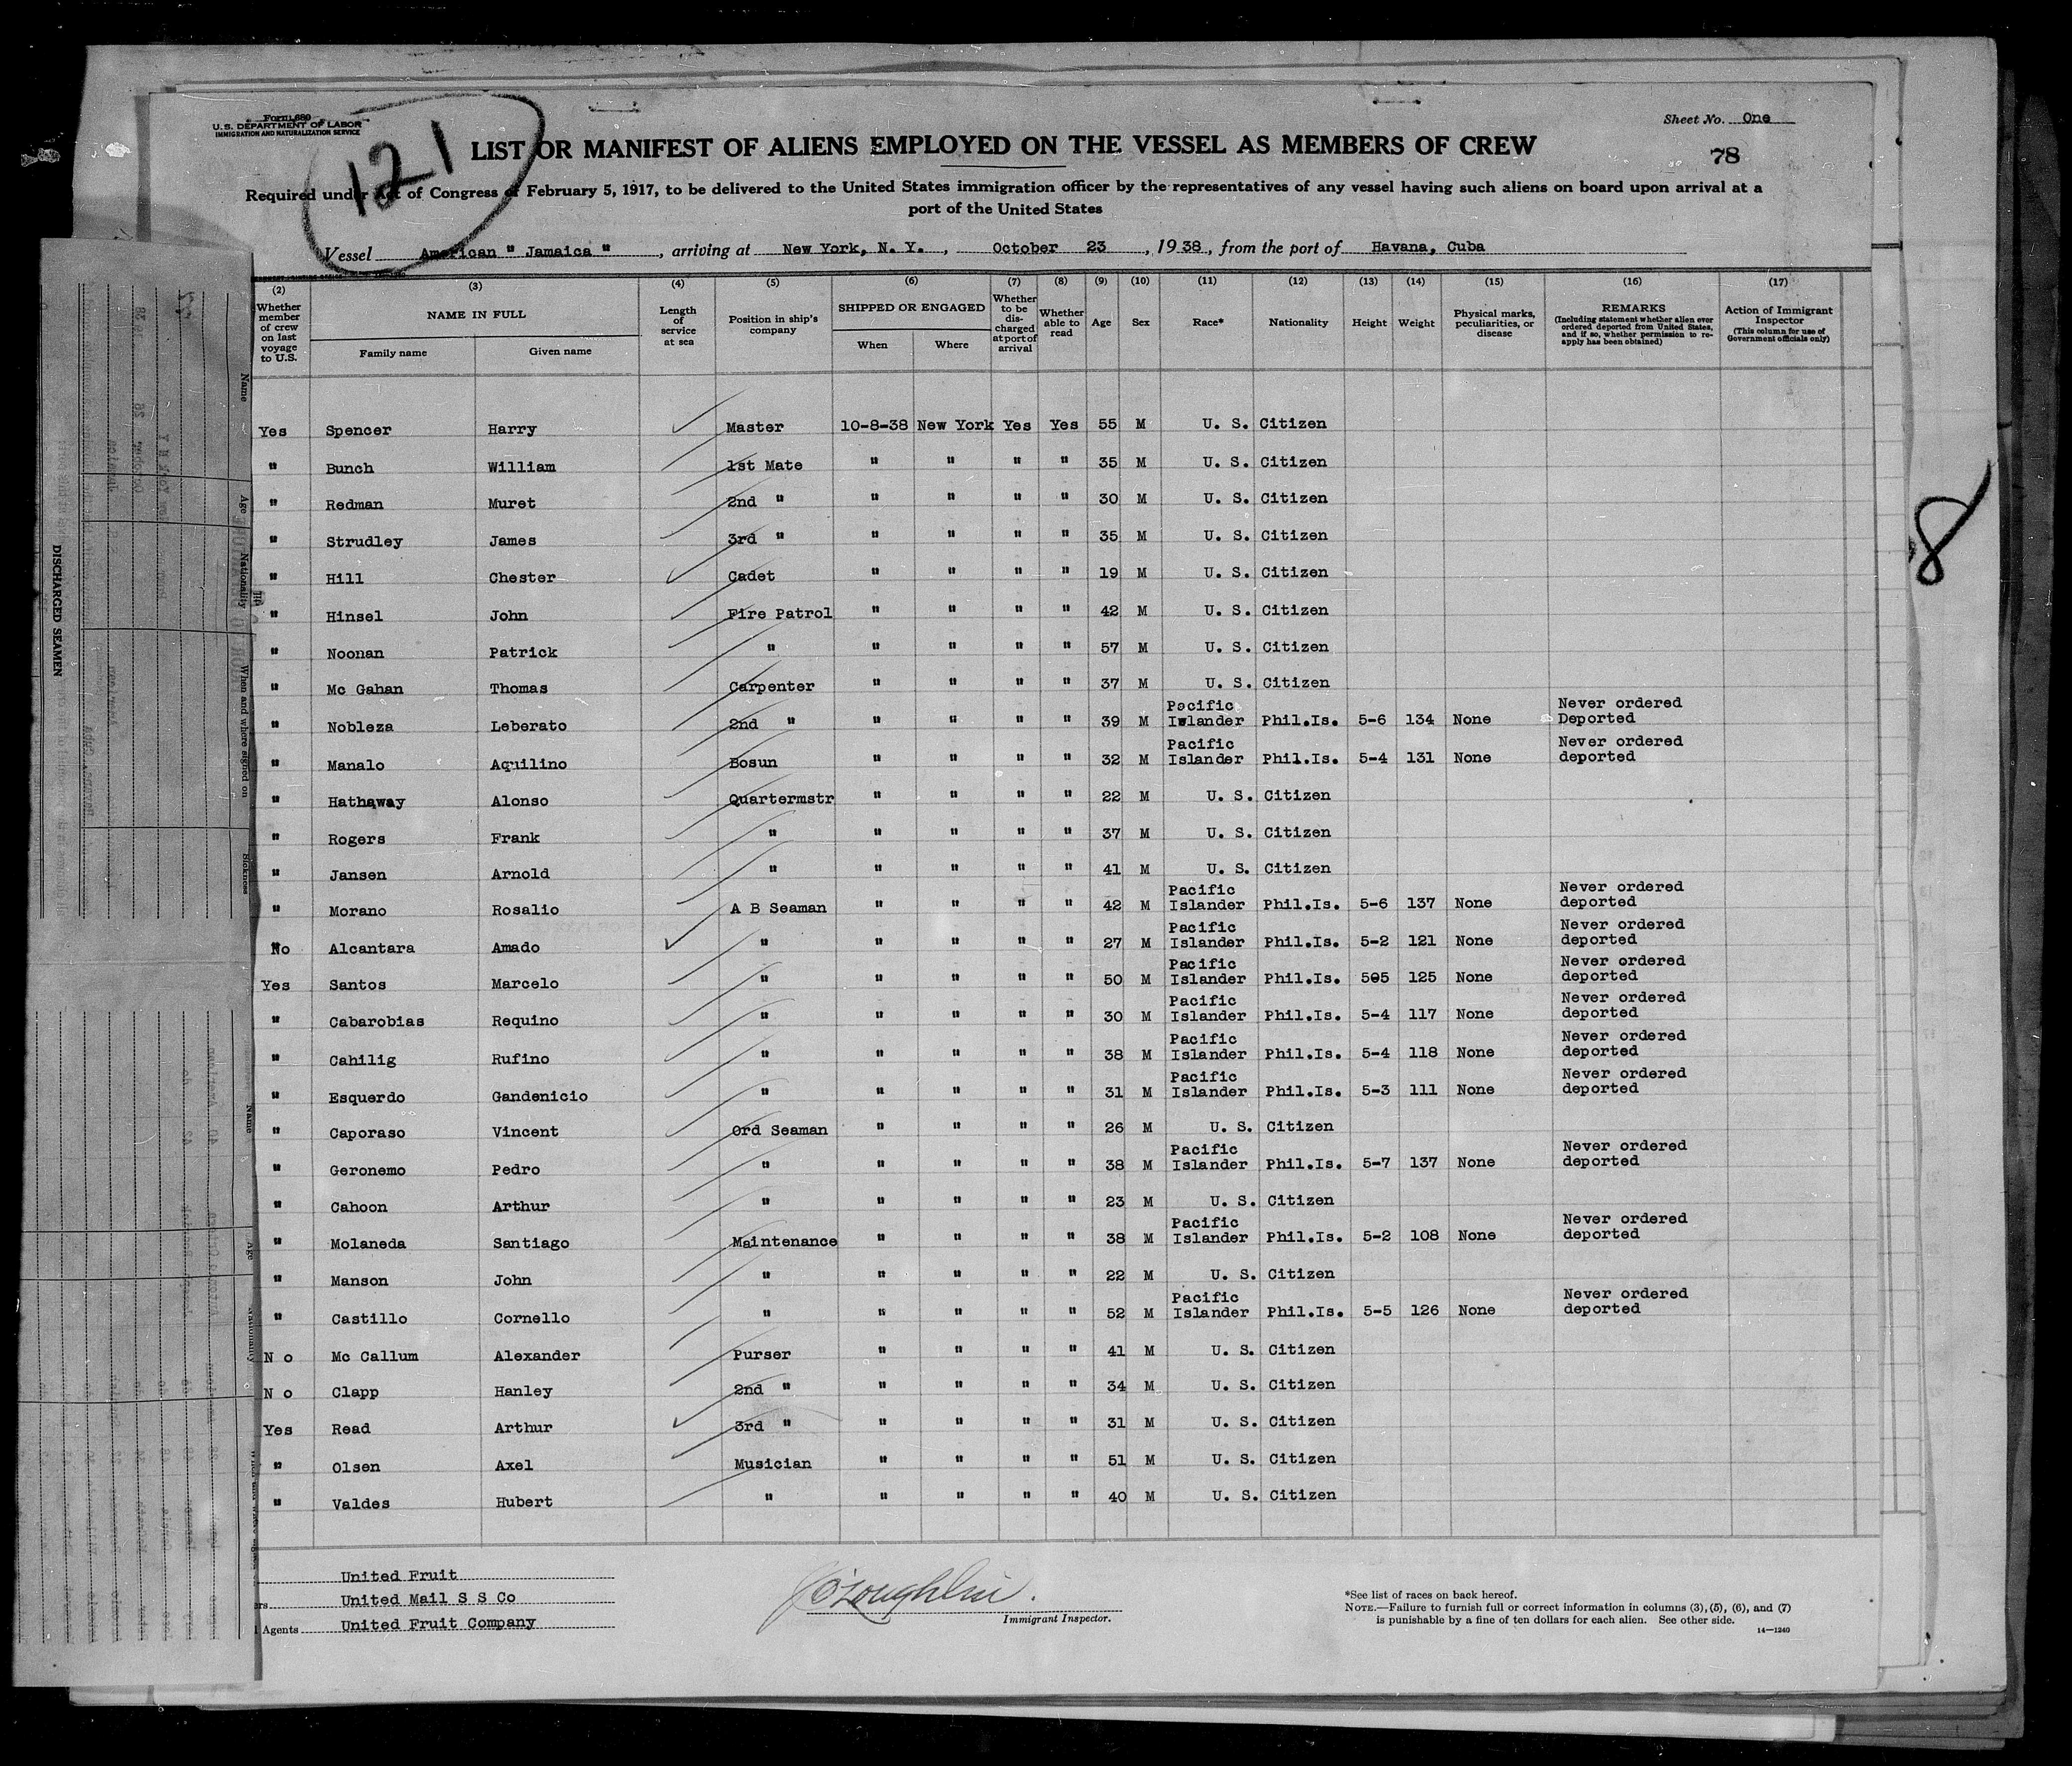 Form 680
U. S. DEPARTMENT OF LABOR
IMMIGRATION AND NATURALIZATION SERVICE
121
Sheet No. One
LIST OR MANIFEST OF ALIENS EMPLOYED ON THE VESSEL AS MEMBERS OF CREW
78
Required under Act of Congress of February 5, 1917, to be delivered to the United States immigration officer by the representatives of any vessel having such aliens on board upon arrival at a
port of the United States
Vessel American " Jamaica " , arriving at New York, N. Y. , October 23 , 19 38 , from the port of Havana, Cuba
(2) Whether member of crew on last voyage to U.S. (3) NAME IN FULL Family name Given name (4) Length of service at sea (5) Position in ship's company (6) SHIPPED OR ENGAGED When Where (7) Whether to be discharged at port of arrival (8) Whether able to read (9) Age (10) Sex (11) Race* (12) Nationality (13) Height (14) Weight (15) Physical marks, peculiarities, or disease (16) REMARKS (Including statement whether alien ever ordered deported from United States, and if so, whether permission to re-apply has been obtained) (17) Action of Immigrant Inspector (This column for use of Government officials only)
Yes Spencer Harry Master 10-8-38 New York Yes Yes 55 M U. S. Citizen
" Bunch William 1st Mate " " " " 35 M U. S. Citizen
" Redman Muret 2nd " " " " " 30 M U. S. Citizen
" Strudley James 3rd " " " " " 35 M U. S. Citizen
" Hill Chester Cadet " " " " 19 M U. S. Citizen
" Hinsel John Fire Patrol " " " " 42 M U. S. Citizen
" Noonan Patrick " " " " " 57 M U. S. Citizen
" Mc Gahan Thomas Carpenter " " " " 37 M U. S. Citizen
" Nobleza Leberato 2nd " " " " " 39 M Pacific Islander Phil.Is. 5-6 134 None Never ordered Deported
" Manalo Aquilino Bosun " " " " 32 M Pacific Islander Phil.Is. 5-4 131 None Never ordered deported
" Hathaway Alonso Quartermstr " " " " 22 M U. S. Citizen
" Rogers Frank " " " " " 37 M U. S. Citizen
" Jansen Arnold " " " " " 41 M U. S. Citizen
" Morano Rosalio A B Seaman " " " " 42 M Pacific Islander Phil.Is. 5-6 137 None Never ordered deported
No Alcantara Amado " " " " " 27 M Pacific Islander Phil.Is. 5-2 121 None Never ordered deported
Yes Santos Marcelo " " " " " 50 M Pacific Islander Phil.Is. 505 125 None Never ordered deported
" Cabarobias Requino " " " " " 30 M Pacific Islander Phil.Is. 5-4 117 None Never ordered deported
" Cahilig Rufino " " " " " 38 M Pacific Islander Phil.Is. 5-4 118 None Never ordered deported
" Esquerdo Gandenicio " " " " " 31 M Pacific Islander Phil.Is. 5-3 111 None Never ordered deported
" Caporaso Vincent Ord Seaman " " " " 26 M U. S. Citizen
" Geronemo Pedro " " " " " 38 M Pacific Islander Phil.Is. 5-7 137 None Never ordered deported
" Cahoon Arthur " " " " " 23 M U. S. Citizen
" Molaneda Santiago Maintenance " " " " 38 M Pacific Islander Phil.Is. 5-2 108 None Never ordered deported
" Manson John " " " " " 22 M U. S. Citizen
" Castillo Cornello " " " " " 52 M Pacific Islander Phil.Is. 5-5 126 None Never ordered deported
N o Mc Callum Alexander Purser " " " " 41 M U. S. Citizen
N o Clapp Hanley 2nd " " " " " 34 M U. S. Citizen
Yes Read Arthur 3rd " " " " " 31 M U. S. Citizen
" Olsen Axel Musician " " " " 51 M U. S. Citizen
" Valdes Hubert " " " " " 40 M U. S. Citizen
8
United Fruit
United Mail S S Co
Agents United Fruit Company
O'Loughlin
Immigrant Inspector.
*See list of races on back hereof.
NOTE.—Failure to furnish full or correct information in columns (3), (5), (6), and (7)
is punishable by a fine of ten dollars for each alien. See other side.
14—1240
DISCHARGED SEAMEN
Name
Age
Nationality
When and where signed on
Sickness
Name
Age
Nationality